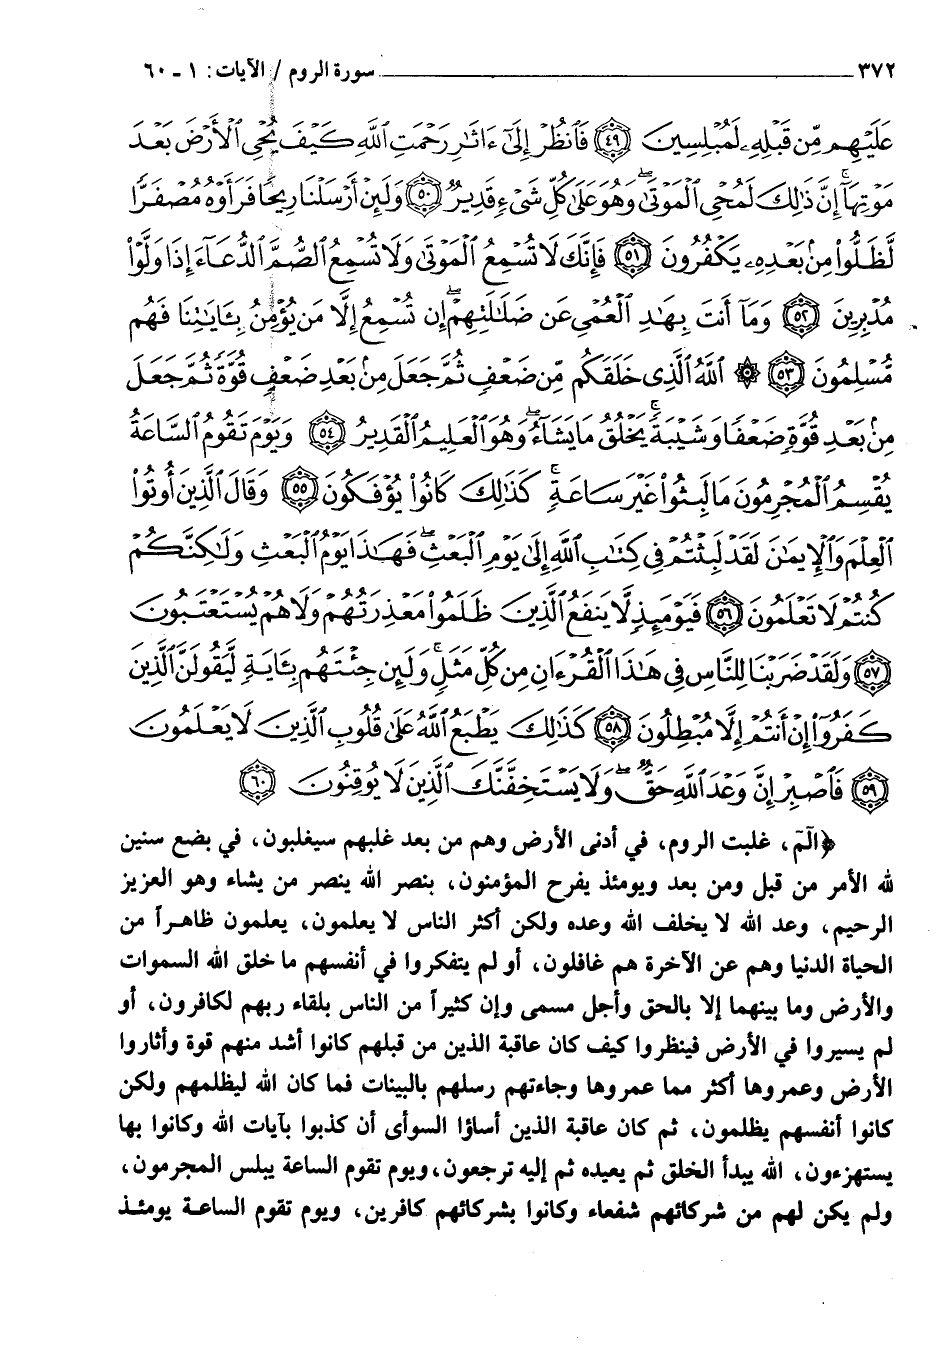 ٣٧٢ سورة الروم / الآيات: ١ ـ ٦٠
عَلَيْهِم مِّن قَبْلِهِۦ لَمُبْلِسِينَ ﴿٤٩﴾ فَٱنظُرْ إِلَىٰٓ ءَاثَٰرِ رَحْمَتِ ٱللَّهِ كَيْفَ يُحْىِ ٱلْأَرْضَ بَعْدَ
مَوْتِهَآ ۚ إِنَّ ذَٰلِكَ لَمُحْىِ ٱلْمَوْتَىٰ ۖ وَهُوَ عَلَىٰ كُلِّ شَىْءٍ قَدِيرٌ ﴿٥٠﴾ وَلَئِنْ أَرْسَلْنَا رِيحًا فَرَأَوْهُ مُصْفَرًّا
لَّظَلُّوا۟ مِنۢ بَعْدِهِۦ يَكْفُرُونَ ﴿٥١﴾ فَإِنَّكَ لَا تُسْمِعُ ٱلْمَوْتَىٰ وَلَا تُسْمِعُ ٱلصُّمَّ ٱلدُّعَآءَ إِذَا وَلَّوْا۟
مُدْبِرِينَ ﴿٥٢﴾ وَمَآ أَنتَ بِهَٰدِ ٱلْعُمْىِ عَن ضَلَٰلَتِهِمْ ۖ إِن تُسْمِعُ إِلَّا مَن يُؤْمِنُ بِـَٔايَٰتِنَا فَهُم
مُّسْلِمُونَ ﴿٥٣﴾ ۞ ٱللَّهُ ٱلَّذِى خَلَقَكُم مِّن ضَعْفٍ ثُمَّ جَعَلَ مِنۢ بَعْدِ ضَعْفٍ قُوَّةً ثُمَّ جَعَلَ
مِنۢ بَعْدِ قُوَّةٍ ضَعْفًا وَشَيْبَةً ۚ يَخْلُقُ مَا يَشَآءُ ۖ وَهُوَ ٱلْعَلِيمُ ٱلْقَدِيرُ ﴿٥٤﴾ وَيَوْمَ تَقُومُ ٱلسَّاعَةُ
يُقْسِمُ ٱلْمُجْرِمُونَ مَا لَبِثُوا۟ غَيْرَ سَاعَةٍ ۚ كَذَٰلِكَ كَانُوا۟ يُؤْفَكُونَ ﴿٥٥﴾ وَقَالَ ٱلَّذِينَ أُوتُوا۟
ٱلْعِلْمَ وَٱلْإِيمَٰنَ لَقَدْ لَبِثْتُمْ فِى كِتَٰبِ ٱللَّهِ إِلَىٰ يَوْمِ ٱلْبَعْثِ ۖ فَهَٰذَا يَوْمُ ٱلْبَعْثِ وَلَٰكِنَّكُمْ
كُنتُمْ لَا تَعْلَمُونَ ﴿٥٦﴾ فَيَوْمَئِذٍ لَّا يَنفَعُ ٱلَّذِينَ ظَلَمُوا۟ مَعْذِرَتُهُمْ وَلَا هُمْ يُسْتَعْتَبُونَ
﴿٥٧﴾ وَلَقَدْ ضَرَبْنَا لِلنَّاسِ فِى هَٰذَا ٱلْقُرْءَانِ مِن كُلِّ مَثَلٍ ۚ وَلَئِن جِئْتَهُم بِـَٔايَةٍ لَّيَقُولَنَّ ٱلَّذِينَ
كَفَرُوٓا۟ إِنْ أَنتُمْ إِلَّا مُبْطِلُونَ ﴿٥٨﴾ كَذَٰلِكَ يَطْبَعُ ٱللَّهُ عَلَىٰ قُلُوبِ ٱلَّذِينَ لَا يَعْلَمُونَ
﴿٥٩﴾ فَٱصْبِرْ إِنَّ وَعْدَ ٱللَّهِ حَقٌّ ۖ وَلَا يَسْتَخِفَّنَّكَ ٱلَّذِينَ لَا يُوقِنُونَ ﴿٦٠﴾
﴿الٓمٓ، غلبت الروم، في أدنى الأرض وهم من بعد غلبهم سيغلبون، في بضع سنين
لله الأمر من قبل ومن بعد ويومئذ يفرح المؤمنون، بنصر الله ينصر من يشاء وهو العزيز
الرحيم، وعد الله لا يخلف الله وعده ولكن أكثر الناس لا يعلمون، يعلمون ظاهراً من
الحياة الدنيا وهم عن الآخرة هم غافلون، أو لم يتفكروا في أنفسهم ما خلق الله السموات
والأرض وما بينهما إلا بالحق وأجل مسمى وإن كثيراً من الناس بلقاء ربهم لكافرون، أو
لم يسيروا في الأرض فينظروا كيف كان عاقبة الذين من قبلهم كانوا أشد منهم قوة وأثاروا
الأرض وعمروها أكثر مما عمروها وجاءتهم رسلهم بالبينات فما كان الله ليظلمهم ولكن
كانوا أنفسهم يظلمون، ثم كان عاقبة الذين أساؤا السوأى أن كذبوا بآيات الله وكانوا بها
يستهزءون، الله يبدأ الخلق ثم يعيده ثم إليه ترجعون، ويوم تقوم الساعة يبلس المجرمون،
ولم يكن لهم من شركائهم شفعاء وكانوا بشركائهم كافرين، ويوم تقوم الساعة يومئذ